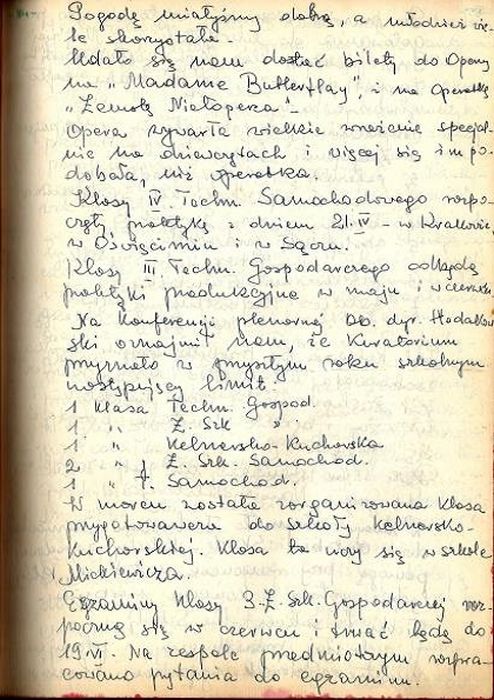 Pogodę miałyśmy dobrą, a młodzież wie-
le skorzystała.
Udało się nam dostać bilety do Opery
na „Madame Butterflay", i na operetkę
„Zemstę Nietoperza"-
Opera wywarła wielkie wrażenie specjal-
nie na dziewczętach i więcej się im po-
dobała, niż operetka.
Klasy IV. Techn. Samochodowego rozpo-
częły praktykę z dniem 21.IV - w Krakowie,
w Oświęcimiu i w Sączu.
Klasy III. Techn. Gospodarczego odbędą
praktyki produkcyjne w maju i w czerwcu.
Na Konferencji plenarnej Ob. dyr. Hodałkow-
ski oznajmił nam, że Kuratorium
przyznało w przyszłym roku szkolnym
następujący limit:
1 klasa Techn. Gospod.
1 „ Z. Szk „
1 „ Kelnersko-Kucharska
2 „ Z. Szk. Samochod.
1 „ T. Samochod.
W marcu została zorganizowana klasa
przygotowawcza do szkoły kelnersko-
kucharskiej. Klasa ta uczy się w szkole
Mickiewicza.
Egzaminy klasy 3. Z. Szk. Gospodarczej roz-
poczną się w czerwcu i trwać będą do
19.VI. Na zespole przedmiotowym opra-
cowano pytania do egzaminu.